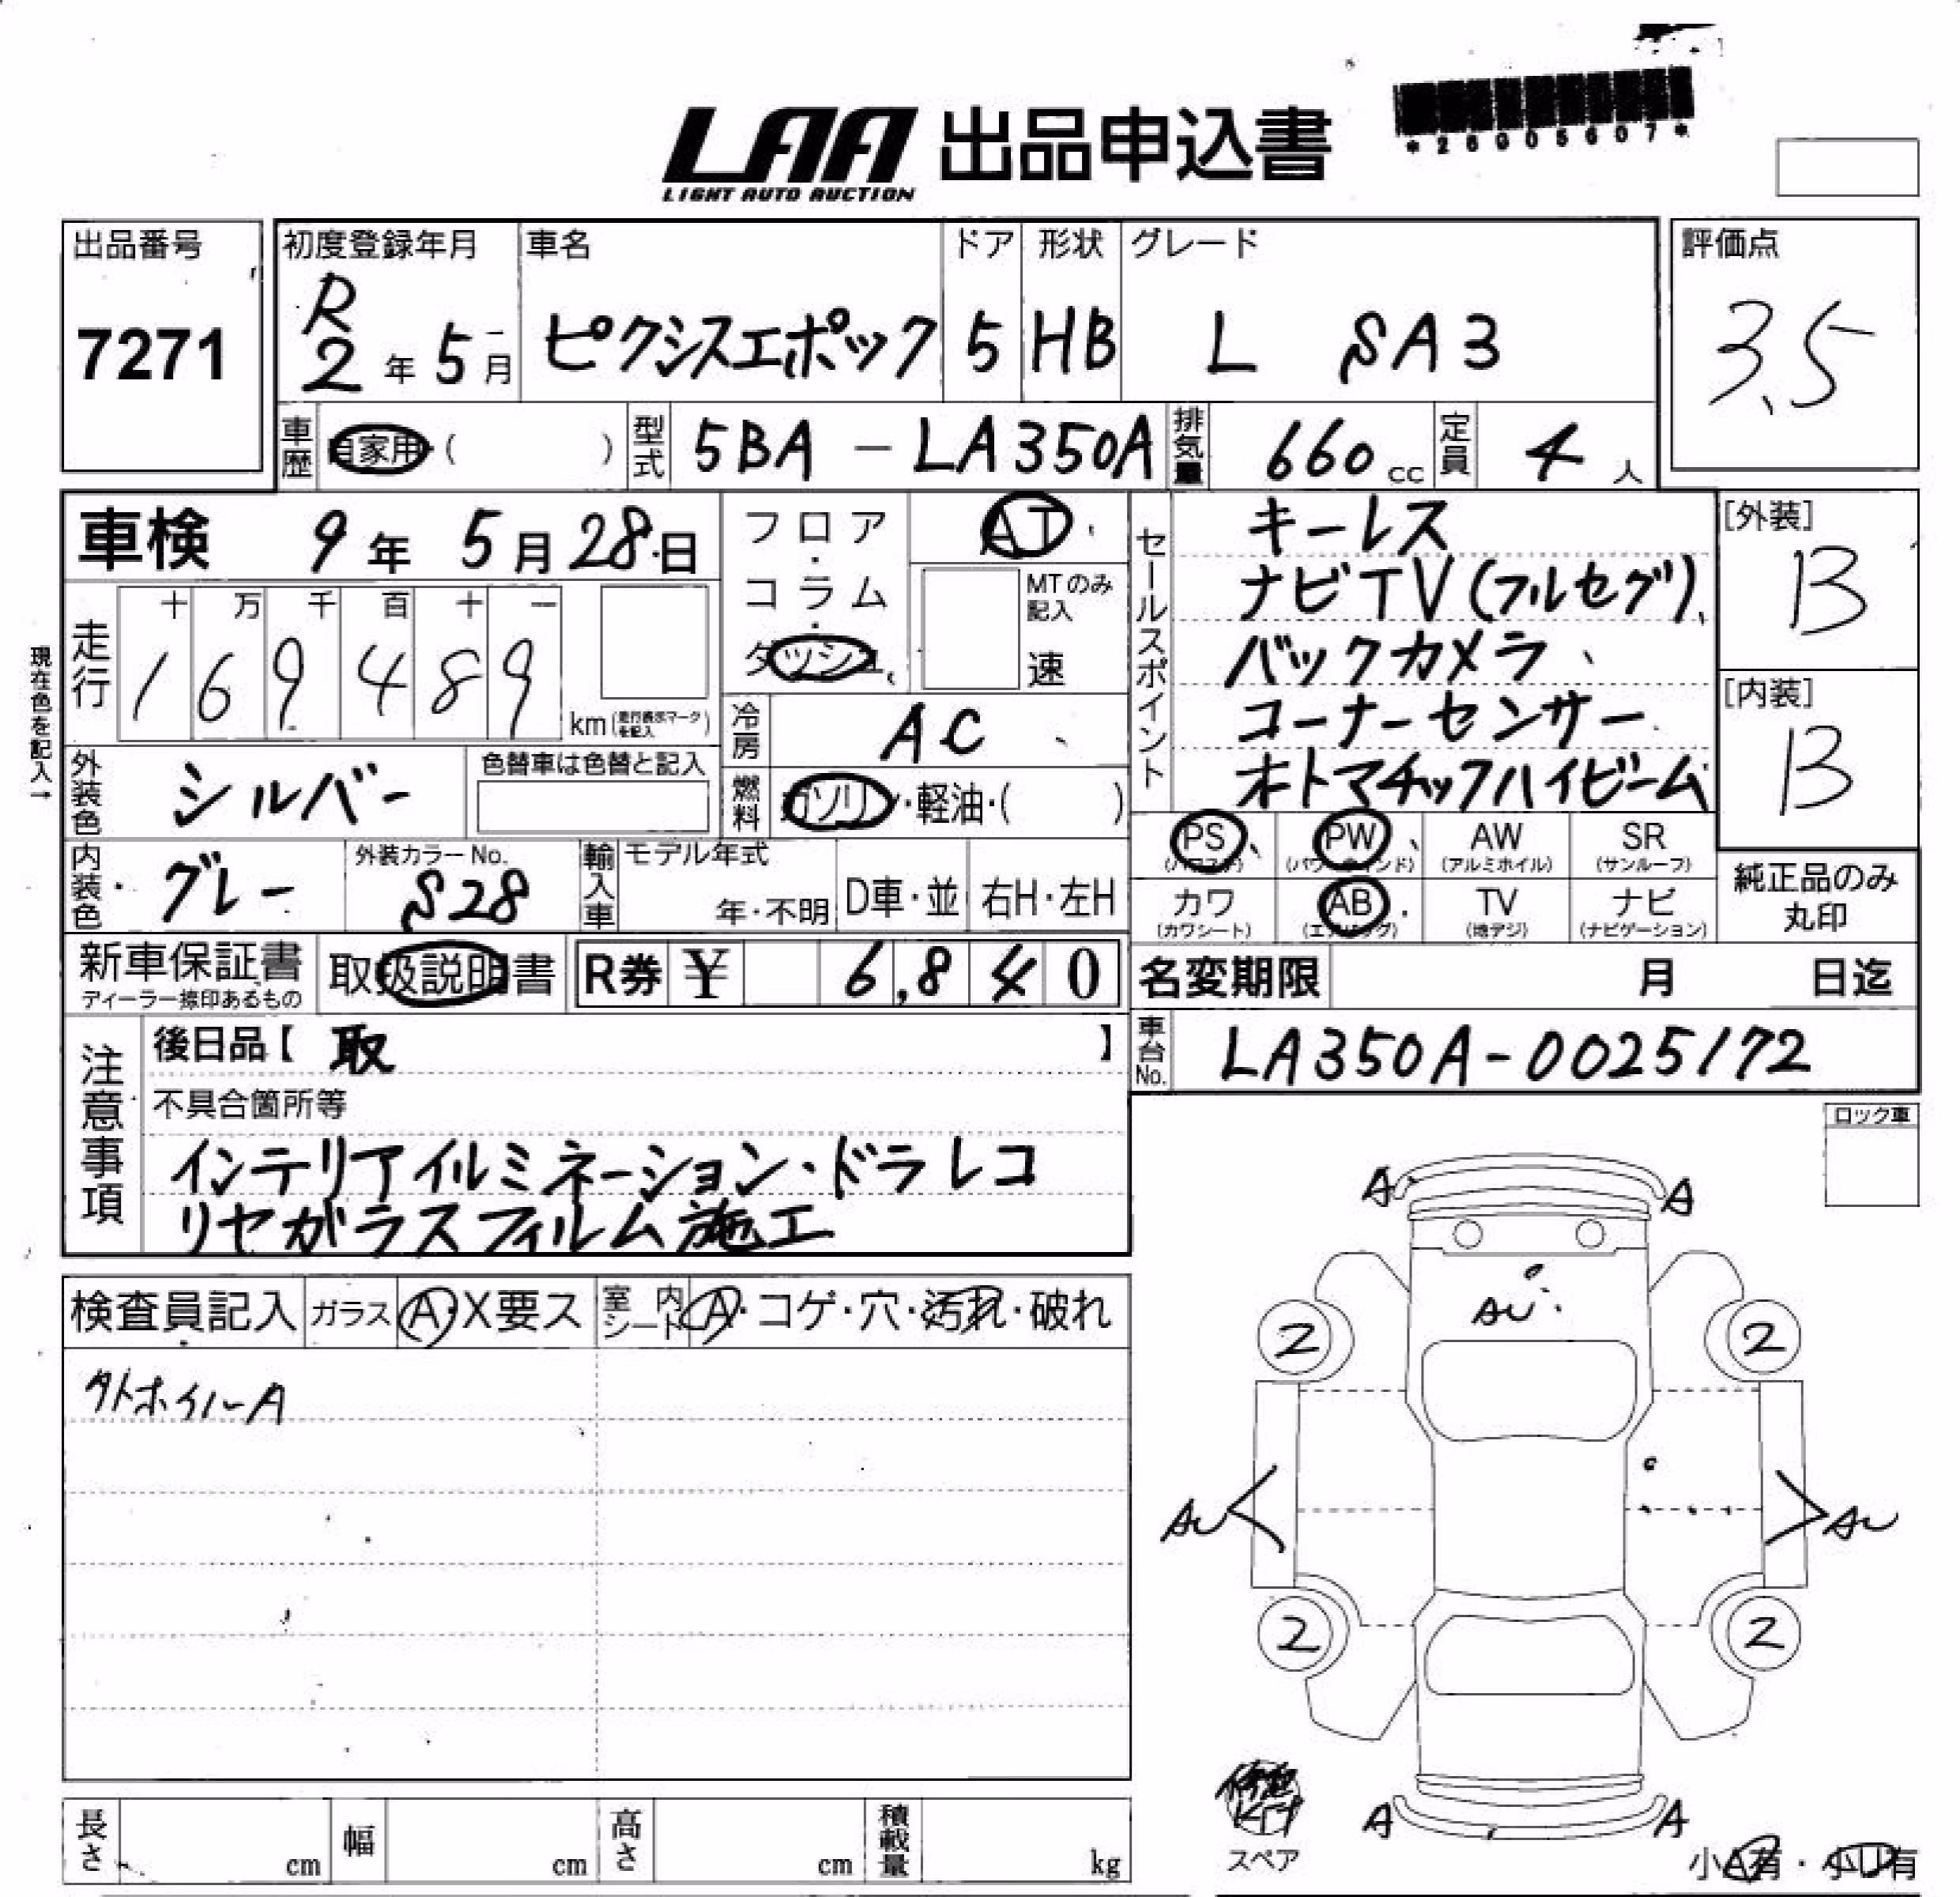 LAA 出品申込書
LIGHT AUTO AUCTION
*26005607*
出品番号
7271
初度登録年月
R2年5月
車名
ピクシスエポック
ドア
5
形状
HB
グレード
L SA3
評価点
3.5
車歴
自家用・( )
型式
5BA-LA350A
排気量
660cc
定員
4人
車検 9年5月28日
現在色を記入→
走行
十 万 千 百 十 一
1 6 9 4 8 9
km(走行表示マークを記入)
フロア・コラム・ダッシュ
AT
MTのみ記入
速
冷房
AC
燃料
ガソリン・軽油・( )
外装色
シルバー
色替車は色替と記入
内装色
グレー
外装カラーNo.
S28
輸入車
モデル年式
年・不明
D車・並
右H・左H
セールスポイント
キーレス
ナビTV(フルセグ)
バックカメラ
コーナーセンサー
オトマチックハイビーム
[外装]
B
[内装]
B
PS
(パワステ)
PW
(パワーウィンド)
AW
(アルミホイル)
SR
(サンルーフ)
カワ
(カワシート)
AB
(エアバッグ)
TV
(地デジ)
ナビ
(ナビゲーション)
純正品のみ
丸印
新車保証書
ディーラー捺印あるもの
取扱説明書
R券 ¥ 6,840
名変期限 月 日迄
車台No.
LA350A-0025172
注意事項
後日品【 取 】
不具合箇所等
インテリアイルミネーション・ドラレコ
リヤガラスフィルム施工
ロック車
検査員記入
ガラス
A・X要ス
室内シート
A・コゲ・穴・汚れ・破れ
A
A A
AU
2 2
AU AU
2 2
A A
スペア
小A有・小U有
長さ cm
幅 cm
高さ cm
積載量 kg